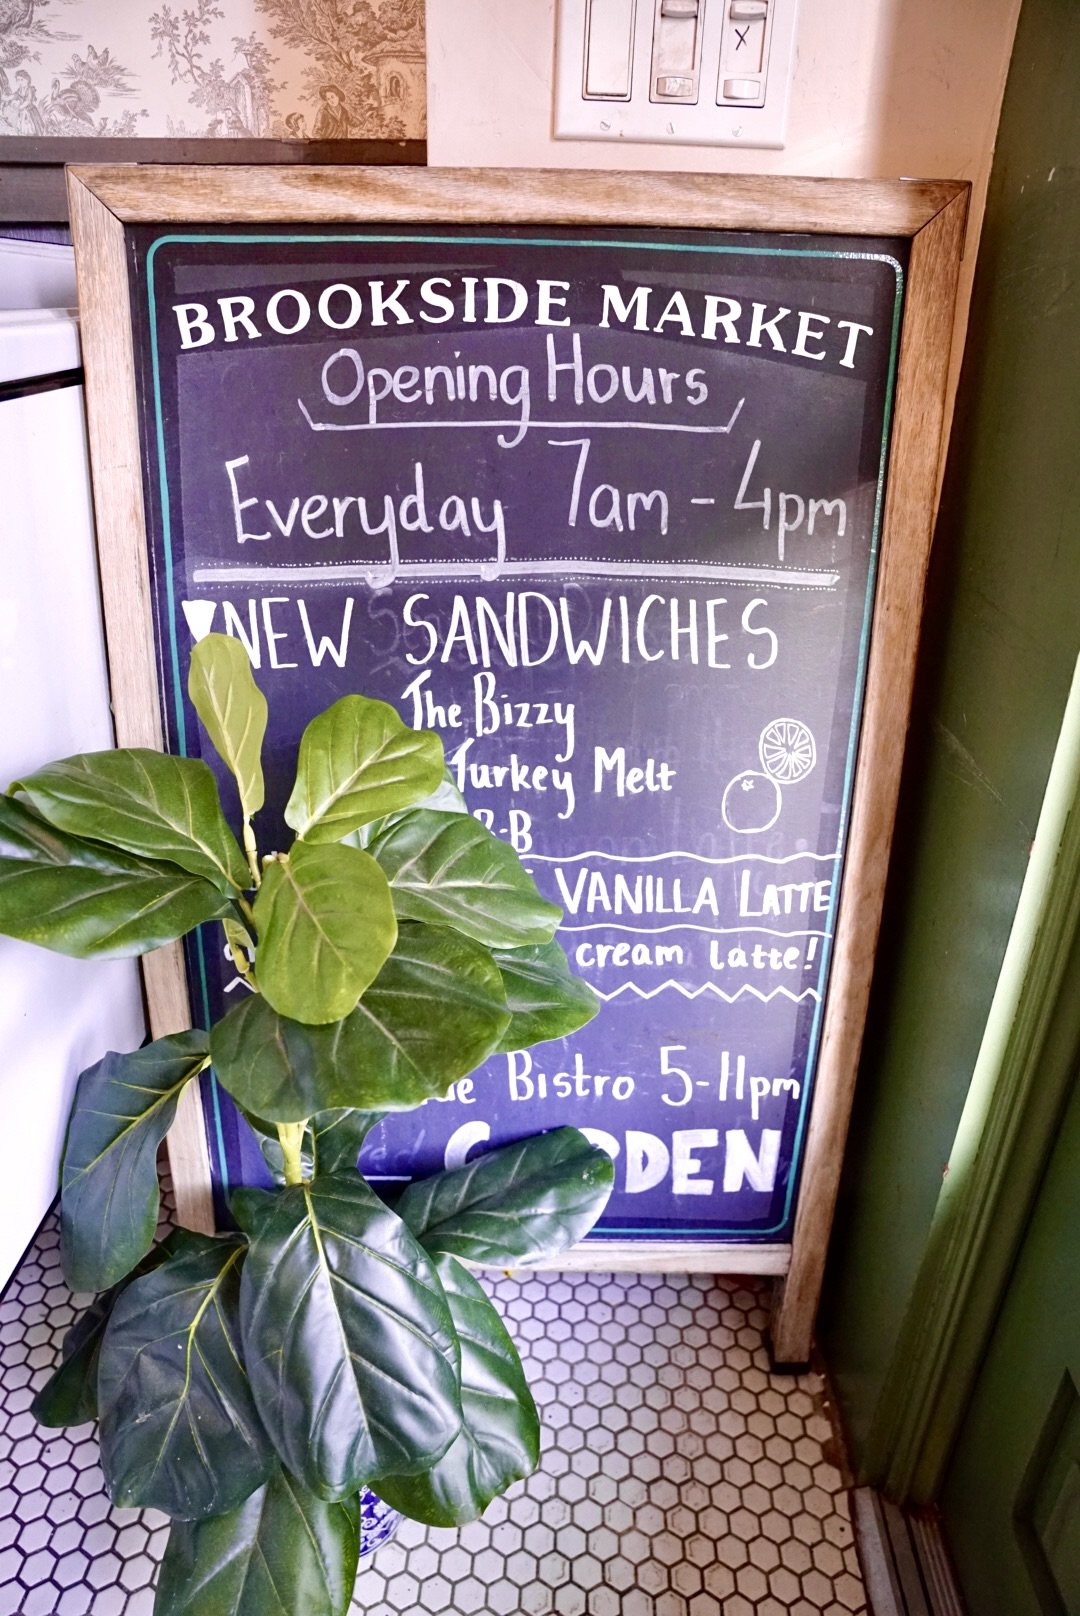 BROOKSIDE MARKET
Opening Hours
Everyday 7am - 4pm
NEW SANDWICHES
The Bizzy
Turkey Melt
VANILLA LATTE
cream latte!
Bistro 5-11pm
X